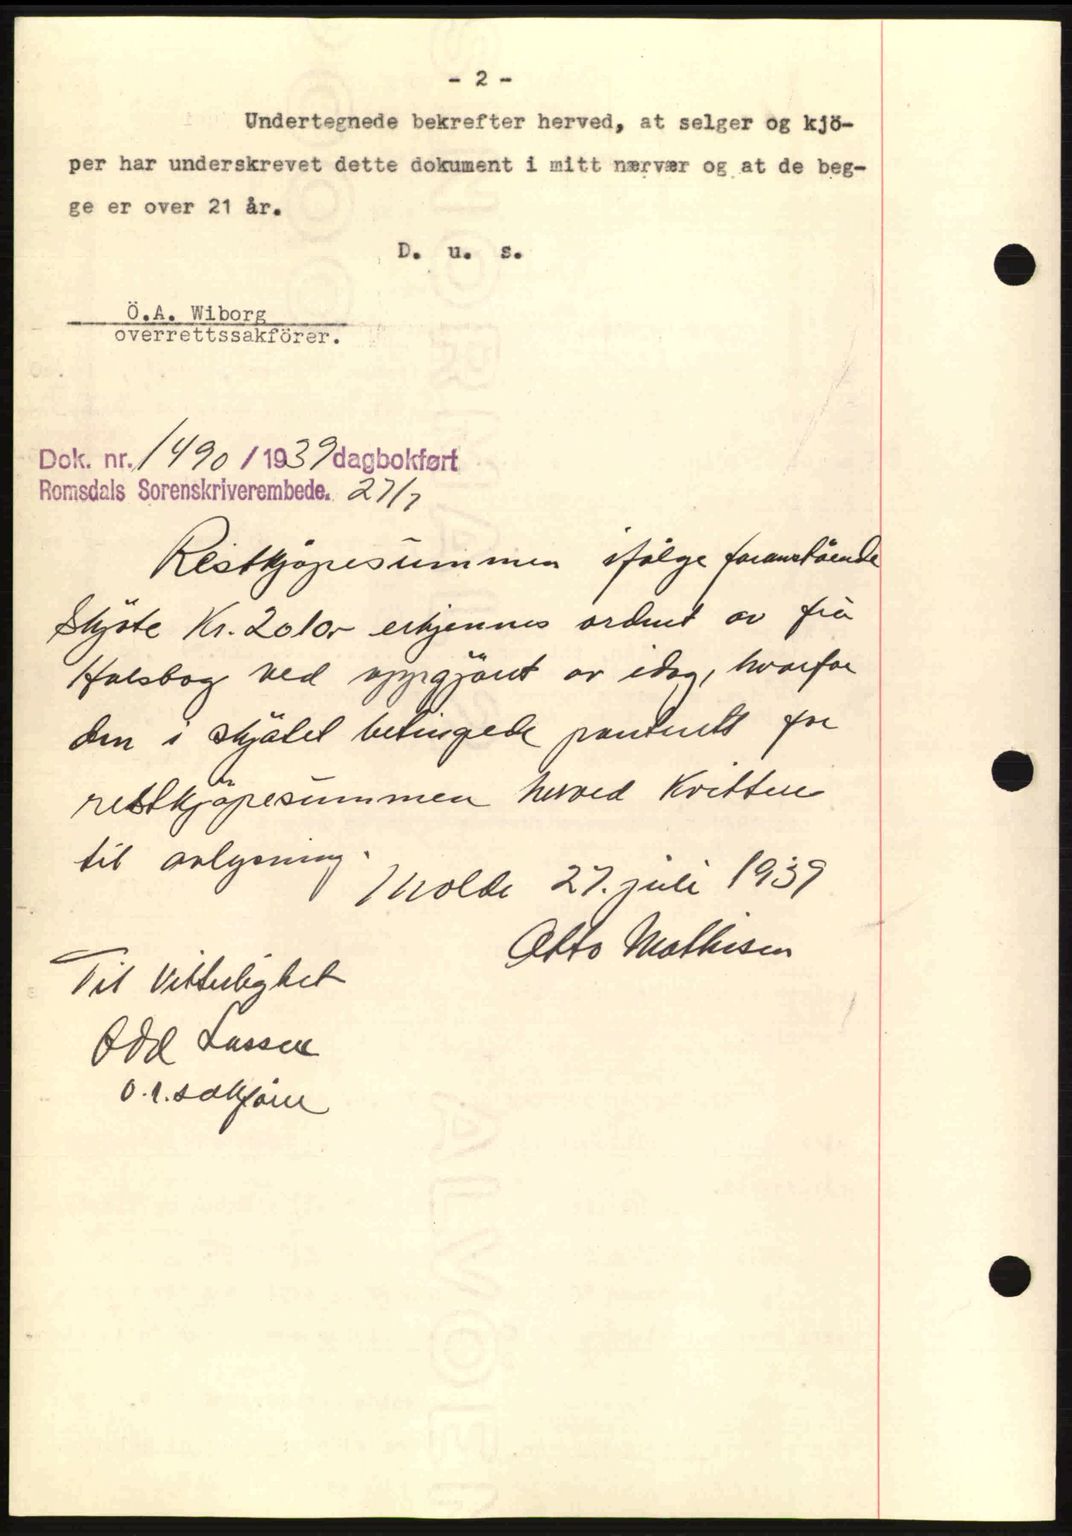 - 2 -
Undertegnede bekrefter herved, at selger og kjö-
per har underskrevet dette dokument i mitt nærvær og at de beg-
ge er over 21 år.
D. u. s.
Ö.A. Wiborg
overrettssakförer.
Dok. nr. 1490 / 1939 dagbokført
Romsdals Sorenskriverembede. 27/7
Restkjøpesummen ifølge foranstående
skjöte Kr. 2010,- erkjennes ordnet av fru
Halsbog ved oppgjöret av idag, hvorfor
den i skjötet betingede panterett for
restkjöpesummen herved kvitteres
til avlysning.
Molde 27. juli 1939
Otto Mathisen
Til Vitterlighet
Odd Lassen
o.r.sakförer